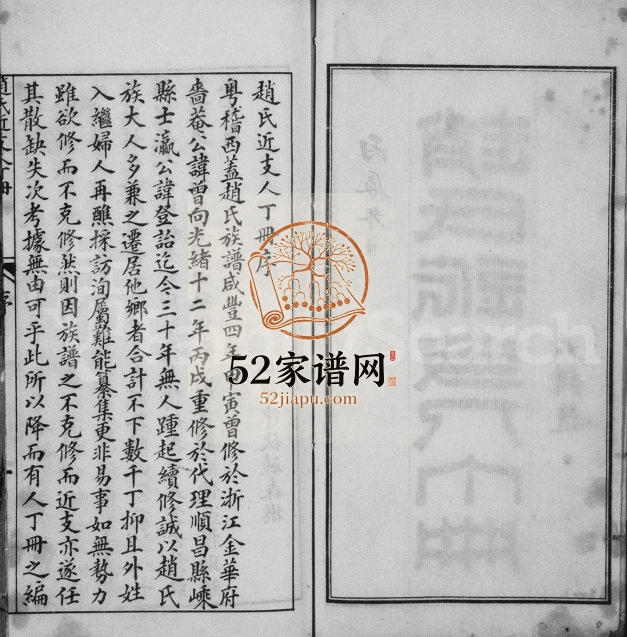 趙氏近支人丁冊序
粵稽西蓋趙氏族譜咸豐四年甲寅曾修於浙江金華府
嗇菴公諱曾向光緒十二年丙戌重修於代理順昌縣嵊
縣士瀛公諱登詒迄今三十年無人踵起續修誠以趙氏
族大人多兼之遷居他鄉者合計不下數千丁抑且外姓
入繼婦人再醮採訪洵屬難能纂集更非易事如無勢力
雖欲修而不克修然則因族譜之不克修而近支亦遂任
其散缺失次考據無由可乎此所以降而有人丁冊之編
趙氏近支人丁冊
序
一
52家谱网
52jiapu.com